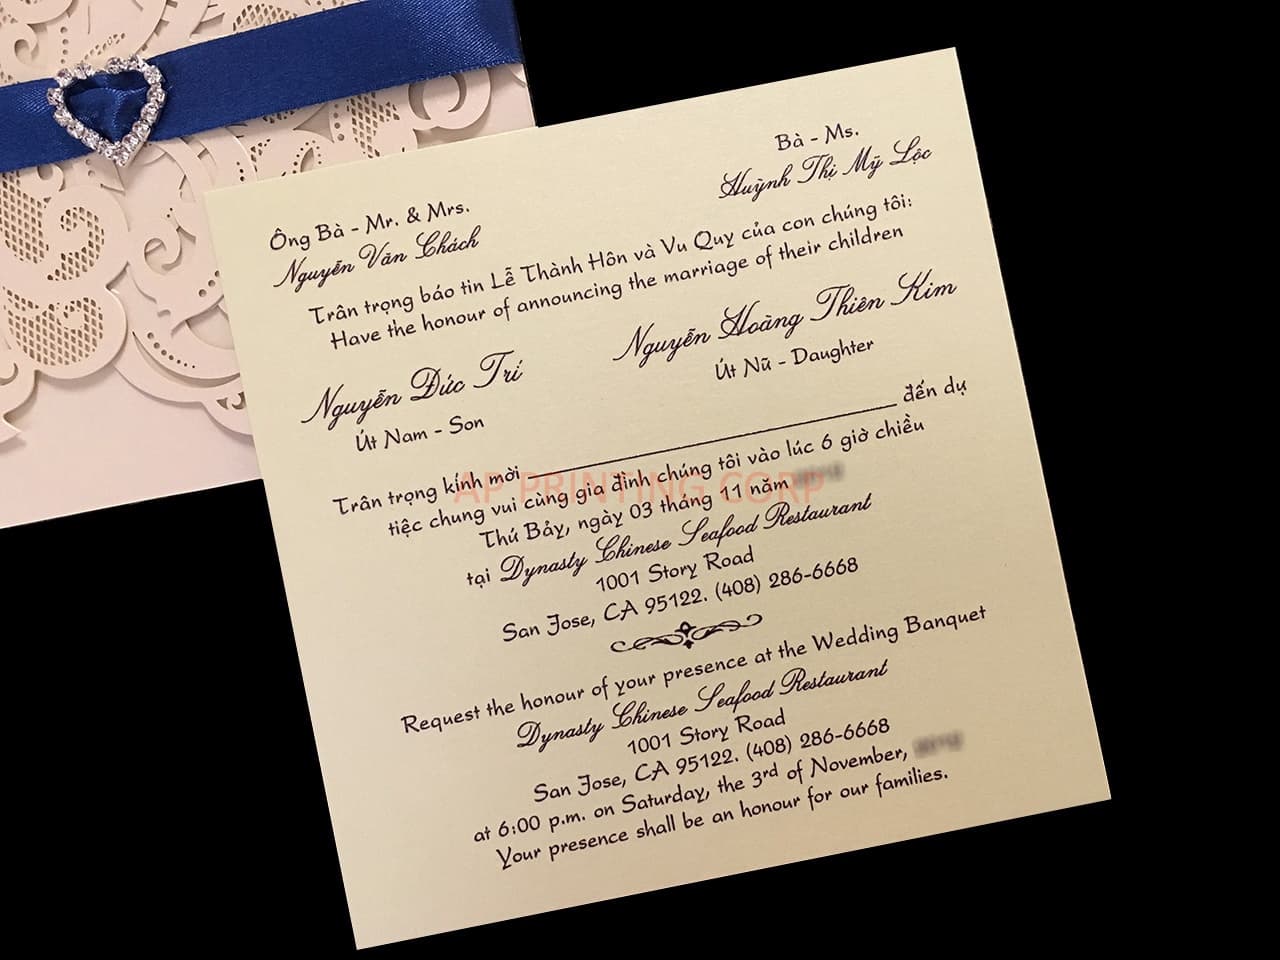 Ông Bà - Mr. & Mrs.
Nguyễn Văn Chách
Bà - Ms.
Huỳnh Thị Mỹ Lộc
Trân trọng báo tin Lễ Thành Hôn và Vu Quy của con chúng tôi:
Have the honour of announcing the marriage of their children
Nguyễn Đức Trí
Út Nam - Son
Nguyễn Hoàng Thiên Kim
Út Nữ - Daughter
Trân trọng kính mời đến dự
tiệc chung vui cùng gia đình chúng tôi vào lúc 6 giờ chiều
Thứ Bảy, ngày 03 tháng 11 năm
tại Dynasty Chinese Seafood Restaurant
1001 Story Road
San Jose, CA 95122. (408) 286-6668
Request the honour of your presence at the Wedding Banquet
Dynasty Chinese Seafood Restaurant
1001 Story Road
San Jose, CA 95122. (408) 286-6668
at 6:00 p.m. on Saturday, the 3rd of November,
Your presence shall be an honour for our families.
AP PRINTING CORP